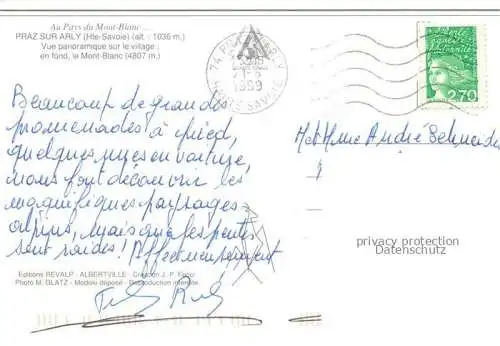 Au Pays du Mont-Blanc...
PRAZ SUR ARLY (Hte-Savoie) (alt. 1036 m.)
Vue panoramique sur le village ;
en fond, le Mont-Blanc (4807 m.)
1999
HAUTE SAVOIE
2,70
Beaucoup de grandes
promenades à pied,
quelques unes en voiture,
nous font découvrir les
magnifiques paysages
alpins, mais que les pentes
sont raides! Affectueusement
M et Mme André Schneider
privacy protection
Datenschutz
Editions REVALP - ALBERTVILLE - Création J. P.
Photo M. BLATZ - Modèle déposé - Reproduction interdite.